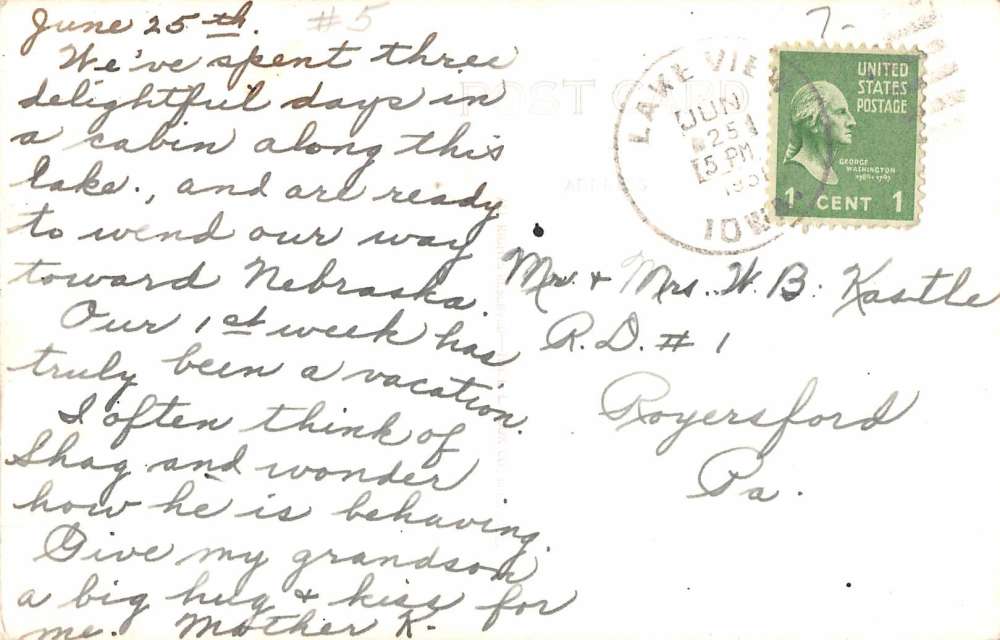 June 25th. #5
We've spent three
delightful days in
a cabin along this
lake., and are ready
to wend our way
toward Nebraska.
Our 1st week has
truly been a vacation.
I often think of
Shag and wonder
how he is behaving.
Give my grandson
a big hug & kiss for
me. Mother K.
7-
POST CARD
LAKE VIEW
JUN
25
5 PM
IOWA
UNITED
STATES
POSTAGE
GEORGE
WASHINGTON
1789-1797
1 CENT 1
Mr. & Mrs. W. B. Kastle
R.D. # 1
Royersford
Pa.